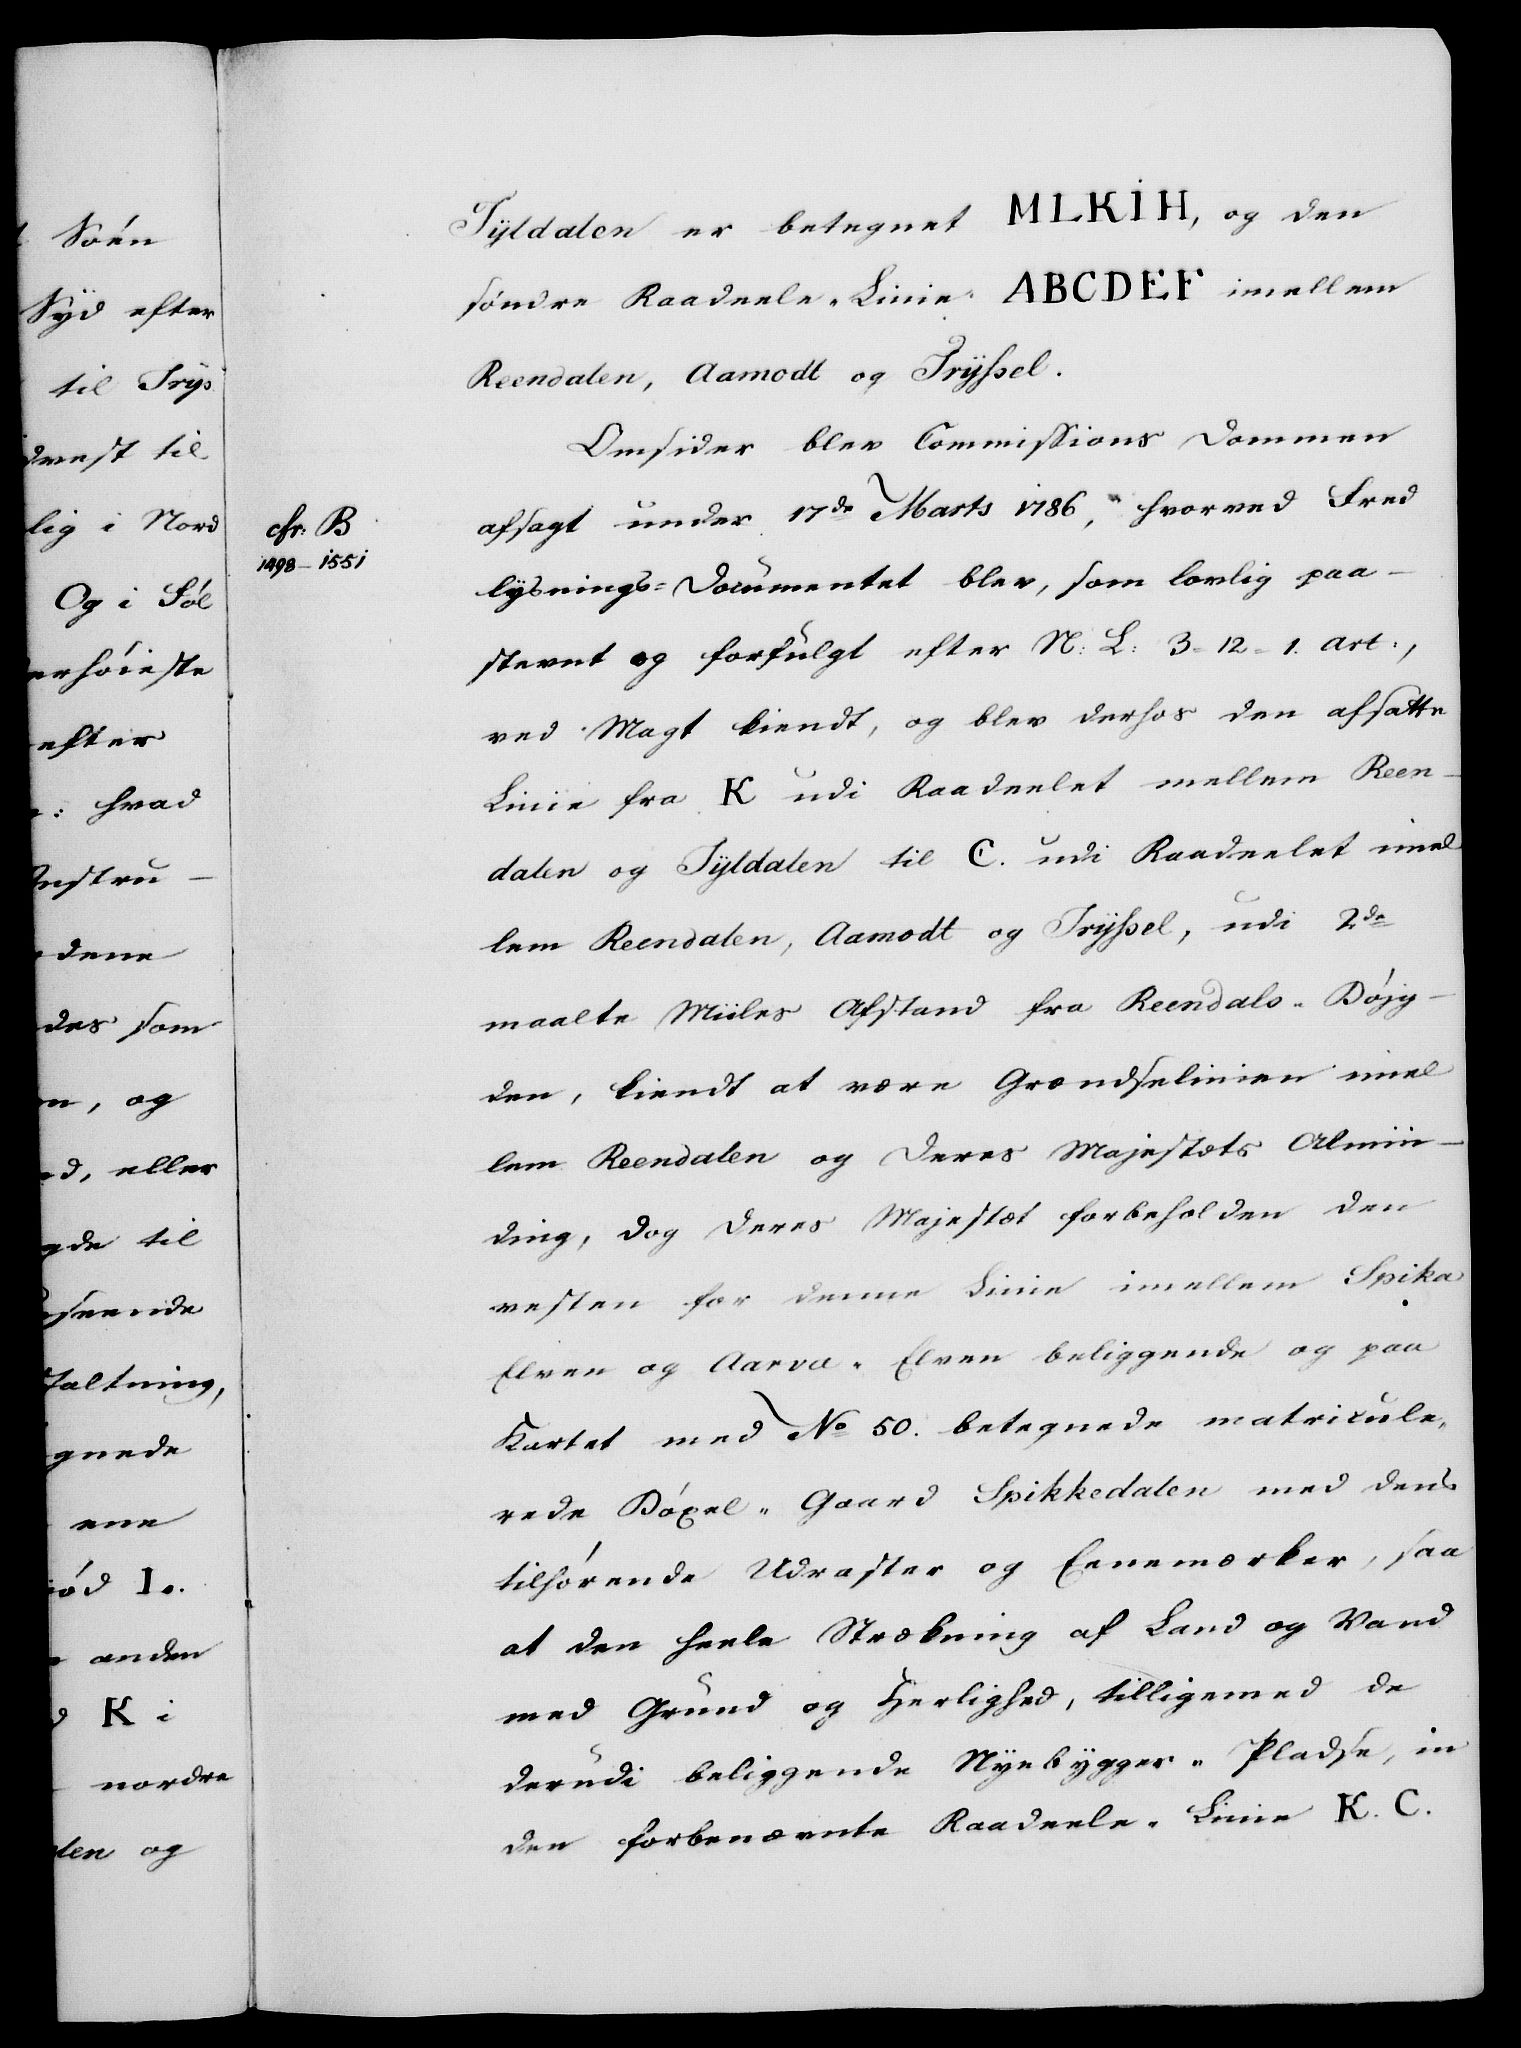 Søen
Syd efter
til Trys
dvest til
lig i Nord
Og i Søl
erhøieste
efter
hvad
Instru-
dene
des som
n, og
d, eller
gde til
seende
taltning,
gnede
ene
iød I.
anden
K i
nordre
len og
cfr: B
1498-1551
Tyldalen er betegnet MLKIH, og den
søndre Raadeele-Linie ABCDEF imellem
Reendalen, Aamodt og Tryssel.
Omsider blev Commissions Dommen
afsagt under 17de Marts 1786, hvorved Fred
lysnings-Documentet blev, som lovlig paa-
stevnt og forfulgt efter N: L: 3-12-1. Art.,
ved Magt kiendt, og blev derhos den afsatte
Linie fra K udi Raadeelet mellem Reen-
dalen og Tyldalen til C. udi Raadeelet imel
lem Reendalen, Aamodt og Tryssel, udi 2de
maalte Miiles Afstand fra Reendals-Bøjg-
den, kiendt at være Grændselinien imel
lem Reendalen og Deres Majestæts Almin-
ding, dog Deres Majestæt forbeholden den
vesten for denne Linie imellem Spika
Elven og Aarva-Elven beliggende og paa
Kartet med No 50. betegnede matricule-
rede Bøxel-Gaard Spikkedalen med dens
tilhørende Udraster og Enemærker, saa
at den heele Strækning af Land og Vand
med Grund og Herlighed, tilligemed de
derudi beliggende Nyebygger-Pladse, in
den forbenævnte Raadeele-Linie K. C.